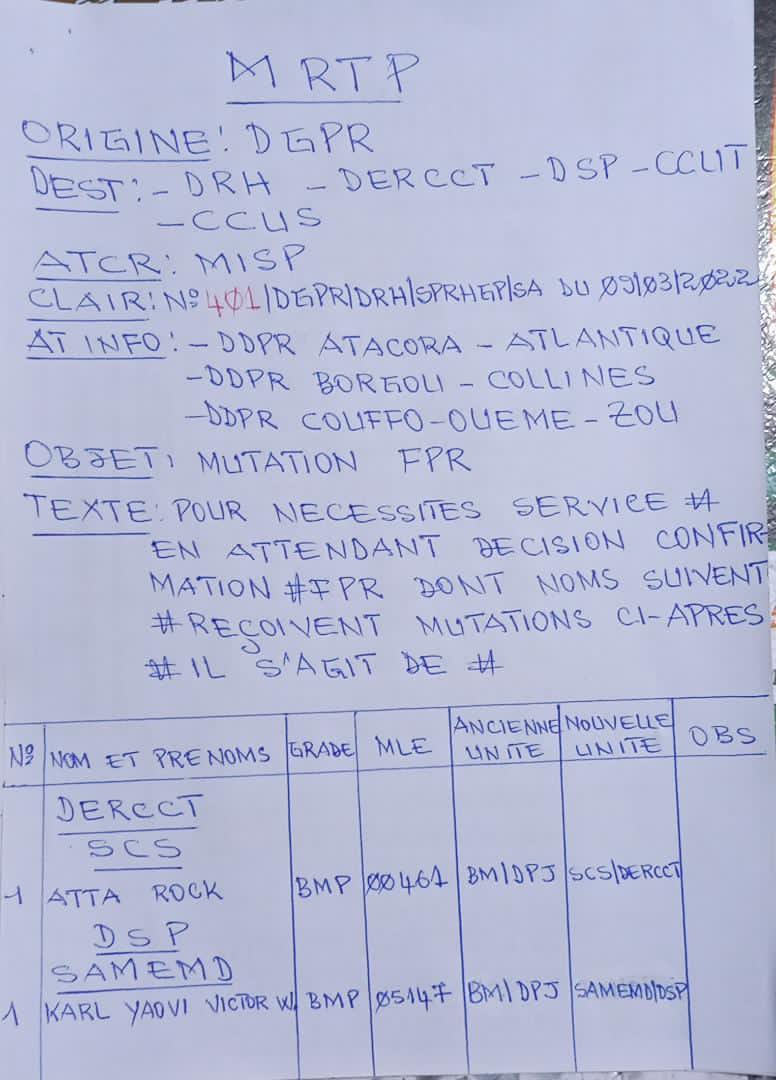 MRTP
ORIGINE: DGPR
DEST: - DRH - DERCCT - DSP - CCUT
- CCUS
ATCR: MISP
CLAIR: Nº 401/DGPR/DRH/SPRHGP/SA DU 09/03/2022
AT INFO: - DDPR ATACORA - ATLANTIQUE
- DDPR BORGOU - COLLINES
- DDPR COUFFO - OUEME - ZOU
OBJET: MUTATION FPR
TEXTE: POUR NECESSITES SERVICE #
EN ATTENDANT DECISION CONFIR-
MATION # FPR DONT NOMS SUIVENT
# REÇOIVENT MUTATIONS CI-APRES
# IL S'AGIT DE #
Nº NOM ET PRENOMS GRADE MLE ANCIENNE UNITE NOUVELLE UNITE OBS
DERCCT
SCS
1 ATTA ROCK BMP 00461 BM/DPJ SCS/DERCCT
DSP
SAMEMD
1 KARL YAOVI VICTOR W. BMP 05147 BM/DPJ SAMEMD/DSP